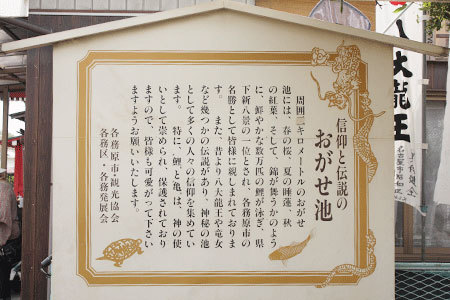 信仰と伝説の
おがせ池
周囲二キロメートルのおがせ
池には、春の桜、夏の睡蓮、秋
の紅葉、そして、錦が舞うかのよう
に、鮮やかな数万匹の鯉が泳ぎ、県
下新八景の一位とされ、各務原市の
名勝として皆様に親しまれておりま
す。また、昔より八大龍王や竜女
など幾つかの伝説があり、神秘の池
として多くの人々の信仰を集めてい
ます。特に、鯉と亀は、神の使
いとして崇められ、保護されており
ますので、皆様も可愛がって下さい
ますようお願いいたします。
各務原市・観光協会
各務区・各務発展会
八大龍王